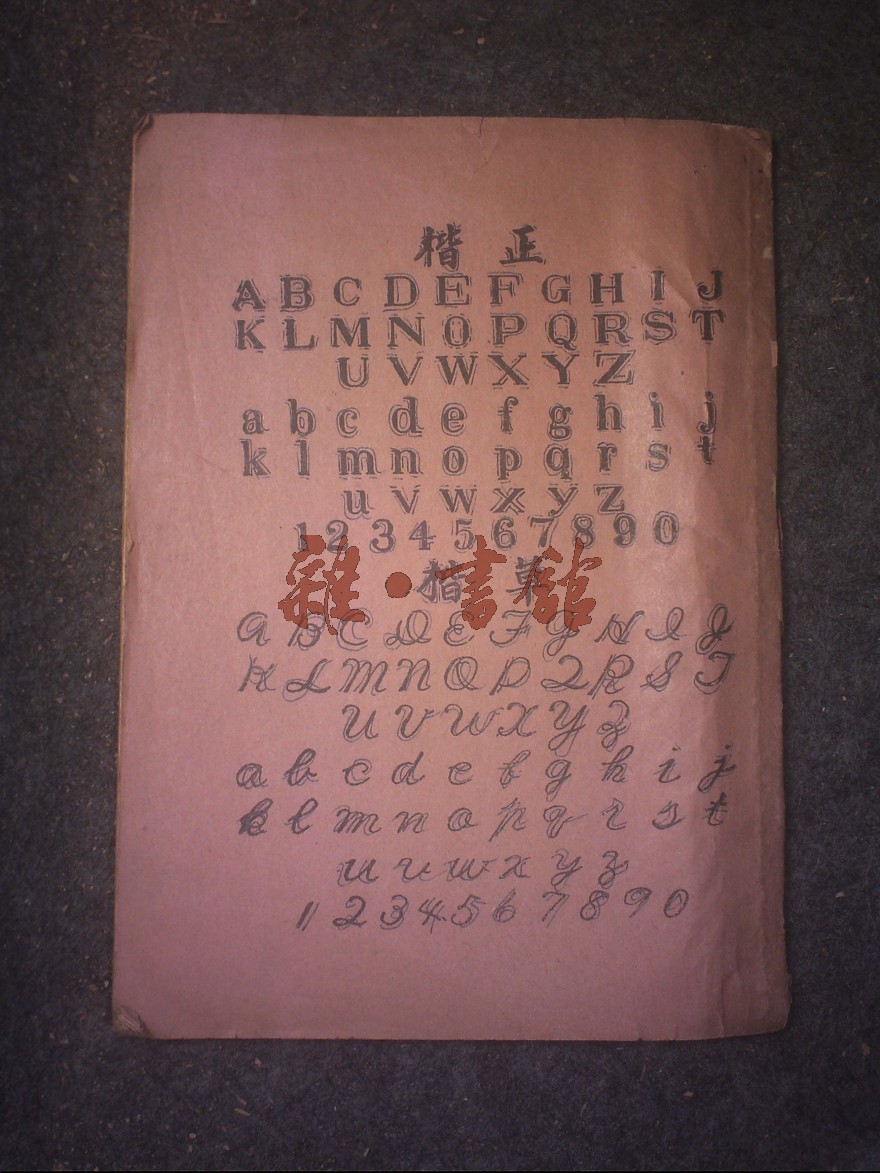 正楷
A B C D E F G H I J
K L M N O P Q R S T
U V W X Y Z
a b c d e f g h i j
k l m n o p q r s t
u v w x y z
1 2 3 4 5 6 7 8 9 0
草楷
雜·書館
A B C D E F G H I J
K L M N O P Q R S T
U V W X Y Z
a b c d e f g h i j
k l m n o p q r s t
u v w x y z
1 2 3 4 5 6 7 8 9 0